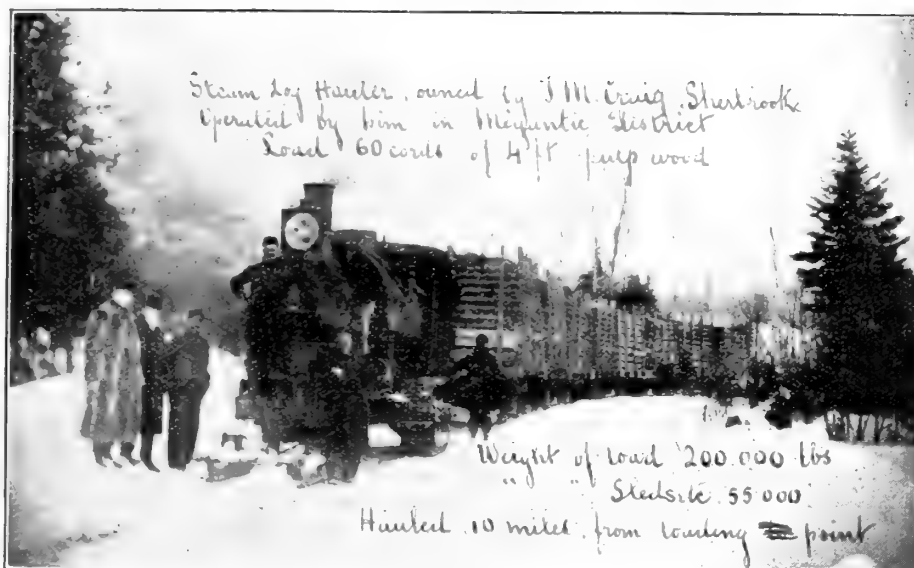 Steam Log Hauler. owned by J M. Craig. Sherbrooke
Operated by him in Meguntic District
Load 60 cords of 4 ft pulp wood
Weight of load 200.000 lbs
" " 55 000
Hauled 10 miles. from loading point